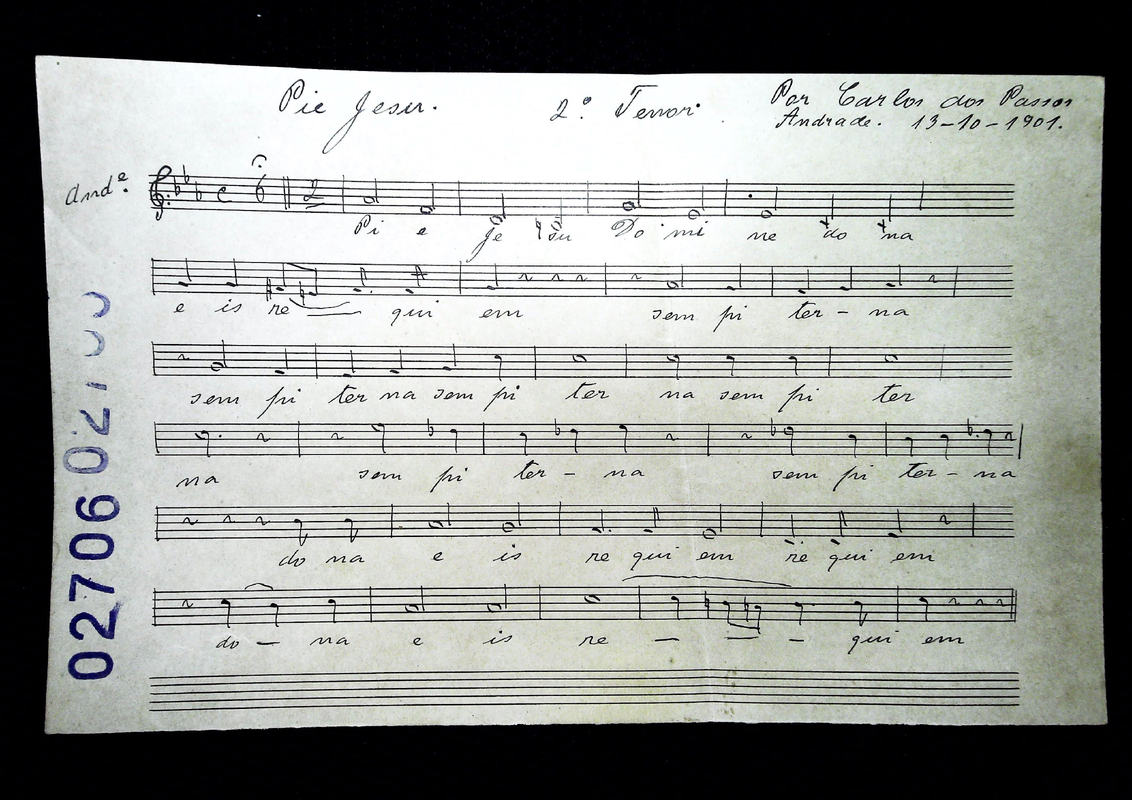 Pie Jesu.
2º Tenor.
Por Carlos dos Passos
Andrade. 13-10-1901.
Andᵉ.
6 2
Pi e Je su Do mi ne do na
e is re qui em sem pi ter - na
sem pi ter na sem pi ter na sem pi ter
na sem pi ter - na sem pi ter - na
do na e is re qui em re qui em
do - na e is re - - - qui em
02706